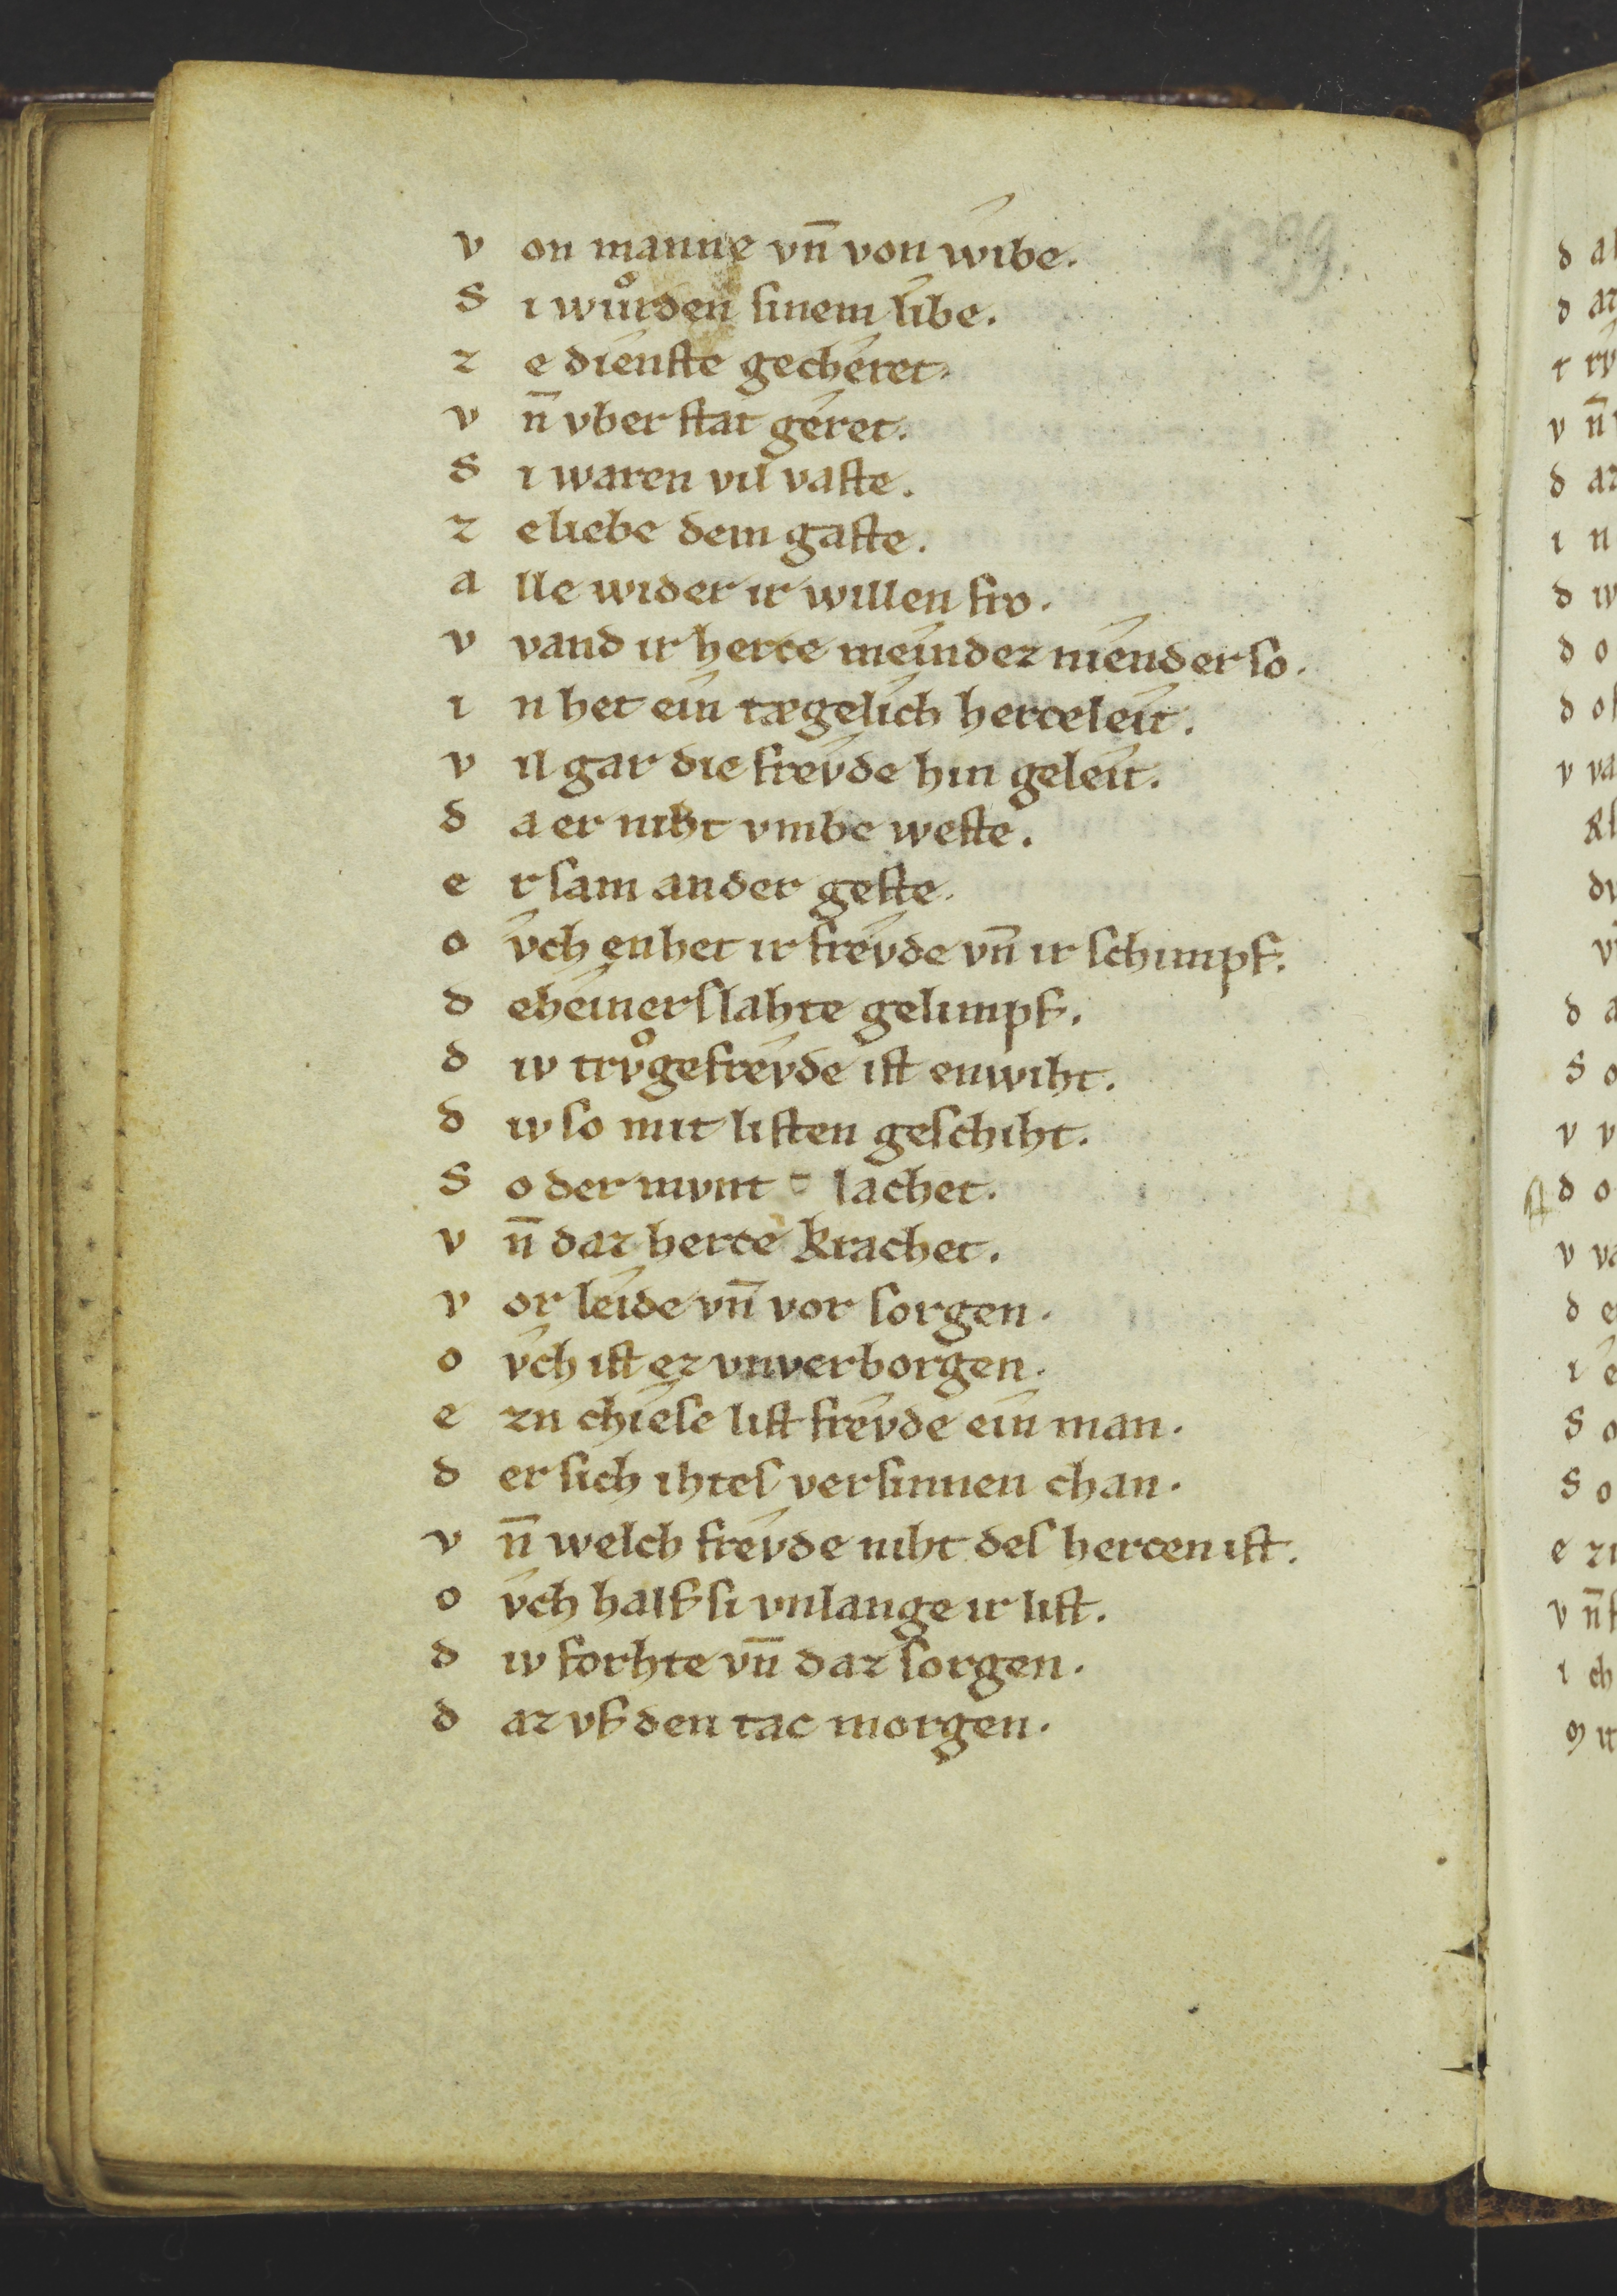 4399.
v on manne vn̄ von wibe.
S i wůrden ſinem libe.
z e dienſte gecheret.
v n̄ vber ſtat geret.
S i waren vil vaſte.
z e liebe dem gaſte.
a lle wider ir willen fro.
v vand ir herce meindez niender ſo.
i n het ein tægelich herceleit.
v il gar die freyde hin geleit.
d a er niht vmbe weſte.
e r ſam ander geſte.
o vch enhet ir freyde vn̄ ir ſchimpf.
d eheiner ſlahte gelimpf.
d iv trvͦgefreyde iſt enwiht.
d iv ſo mit liſten geſchiht.
S o der mvnt lachet.
v n̄ daz herce krachet.
v or leide vn̄ vor ſorgen.
o vch iſt ez vnverborgen.
e zn chieſe liſt freyde ein man.
d er ſich ihteſ verſinnen chan.
v n̄ welch freyde niht deſ hercen iſt.
o vch half ſi vnlange ir liſt.
d iv forhte vn̄ daz ſorgen.
d az vf den tac morgen.